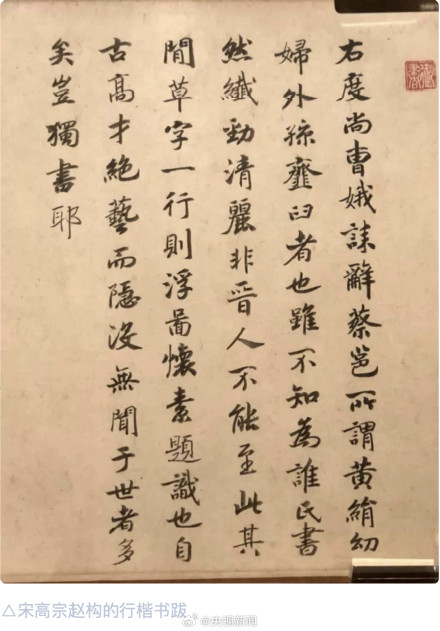 右度尚曹娥誄辭蔡邕所謂黄絹幼
婦外孫虀臼者也雖不知為誰氏書
然纖勁清麗非晉人不能至此其
間草字一行則浮圖懷素題識也自
古高才絶藝而隱没無聞于世者多
矣豈獨書耶
△宋高宗赵构的行楷书跋
@央视新闻